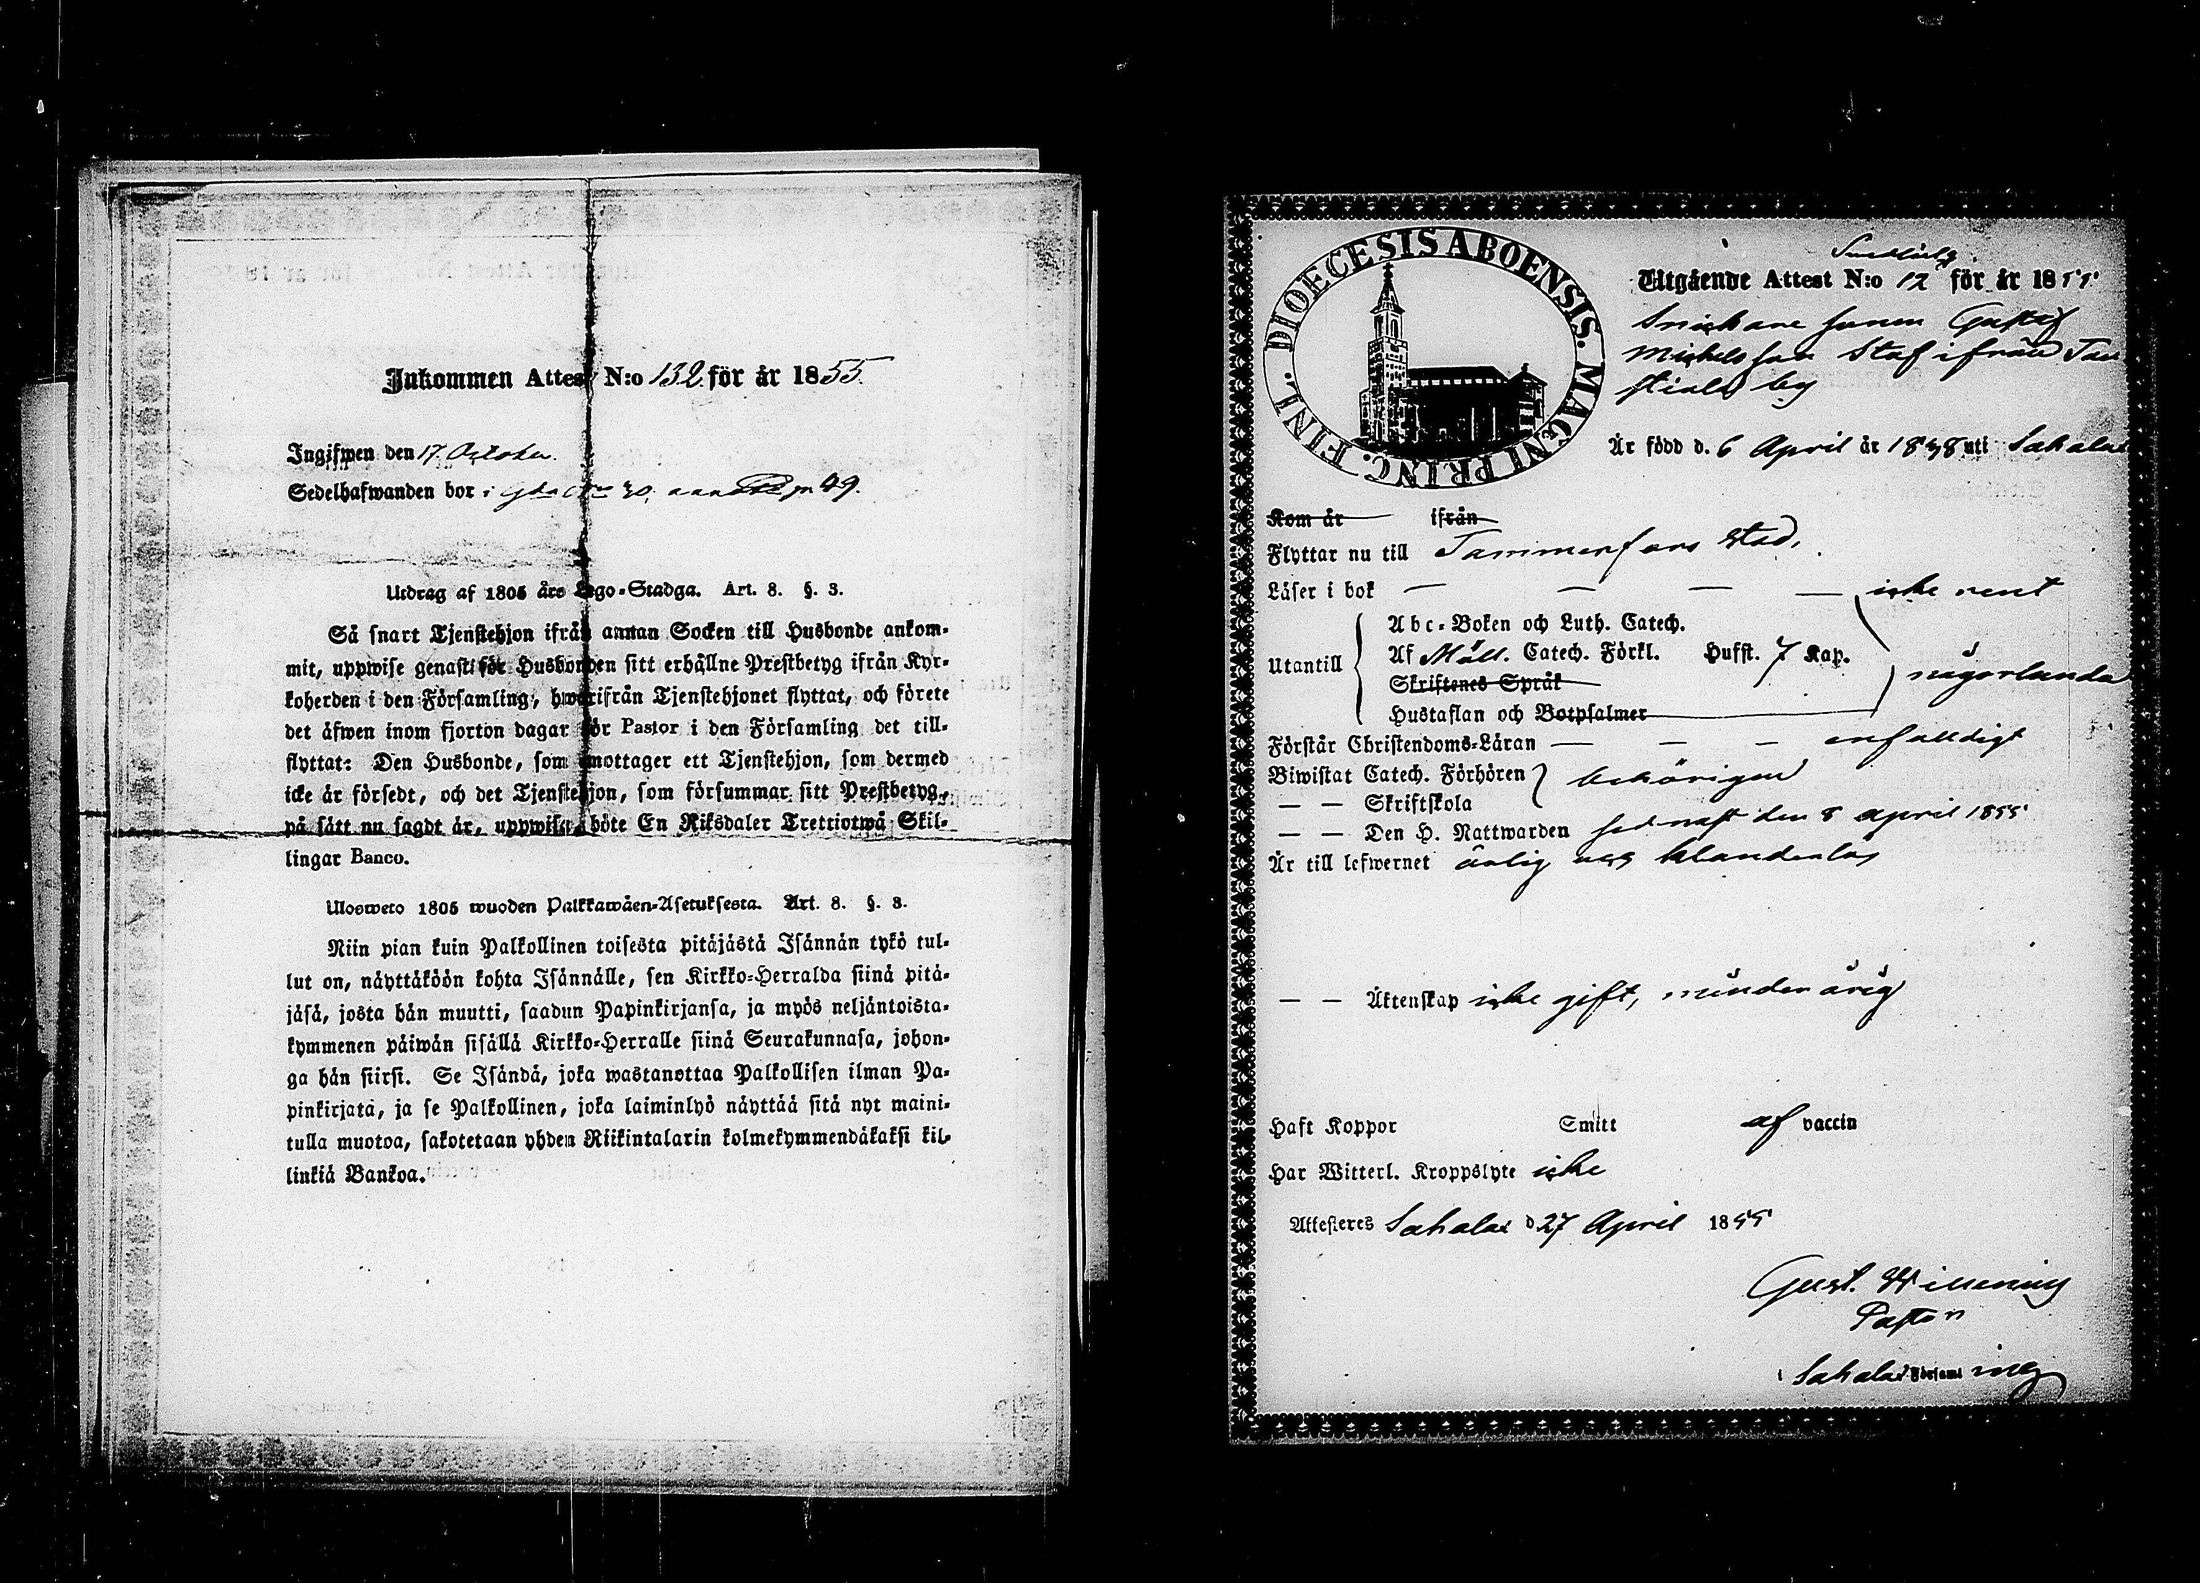 Inkommen Attest N:o 132 för år 1855.
Ingifwen den 17 October.
Sedelhafwanden bor i 49.
Utdrag af 1805 års Lego-Stadga. Art. 8. §. 3.
Så snart Tjenstehjon ifrån annan Socken till Husbonde ankom-
mit, uppwise genast för Husbonden sitt erhållne Prestbetyg ifrån Kyr-
koherden i den Församling, hwarifrån Tjenstehjonet flyttat, och förete
det äfwen inom fjorton dagar för Pastor i den Församling det till-
flyttat: Den Husbonde, som emottager ett Tjenstehjon, som dermed
icke är försedt, och det Tjenstehjon, som försummar sitt Prestbetyg,
på sätt nu sagdt är, uppwisa, böte En Riksdaler Trettiotwå Skil-
lingar Banco.
Ulosweto 1805 wuoden Palkkawäen-Asetuksesta. Art. 8. §. 3.
Niin pian kuin Palkollinen toisesta pitäjästä Isännän tykö tul-
lut on, näyttäköön kohta Isännälle, sen Kirkko-Herralda siinä pitä-
jäsä, josta hän muutti, saadun Papinkirjansa, ja myös neljäntoista-
kymmenen päiwän sisällä Kirkko-Herralle siinä Seurakunnasa, johon-
ga hän siirsi. Se Isändä, joka wastanottaa Palkollisen ilman Pa-
pinkirjata, ja se Palkollinen, joka laiminlyö näyttää sitä nyt maini-
tulla muotoa, sakotetaan yhden Riikintalarin kolmekymmendäkaksi kil-
linkiä Bankoa.
DIOECESIS ABOENSIS. MAGNI PRINC. FINL.
Utgående Attest N:o 12 för år 1855
Snickare sonen Gustaf
Michelsson Staf ifrån
by
Är född d. 6 April år 1838 uti Sahalax
Kom år ifrån
Flyttar nu till Tammerfors stad.
Läser i bok — — — — icke rent
Utantill
Abc-Boken och Luth. Catech.
Af Möll. Catech. Förkl. Hufst. 7 Kap.
Skriftenes Språk
Hustaflan och Botpsalmer
någorlunda
Förstår Christendoms-Läran — — — enfalldigt
Biwistat Catech. Förhören behörigen
— — Skriftskola
— — Den H. Nattwarden sednast den 8 april 1855
Är till lefwernet ärlig och klanderlös
— — Äktenskap icke gift, minderårig
Haft Koppor Smitt af vaccin
Har Witterl. Kroppslyte icke
Attesteres Sahalax d 27 April 1855
Gust. Willenius
Pastor
i Sahalax Församl ing